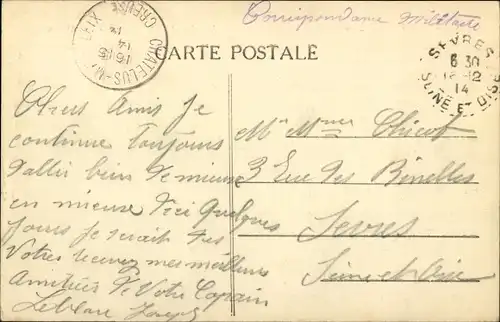 Correspondance Militaire
CARTE POSTALE
CHATELUS-M
CREUSE
16 15
14
SEVRES
6 30
12
14
SEINE ET OISE
Chers Amis Je
continue Toujours
d'aller bien de mieux
en mieux d'ici quelques
jours Je serait des
Votres recevez mes meilleurs
Amitiées de Votre Copain
Leblanc Joseph
Mr Mme
3 Rue des Binelles
Sevres
Seine et Oise